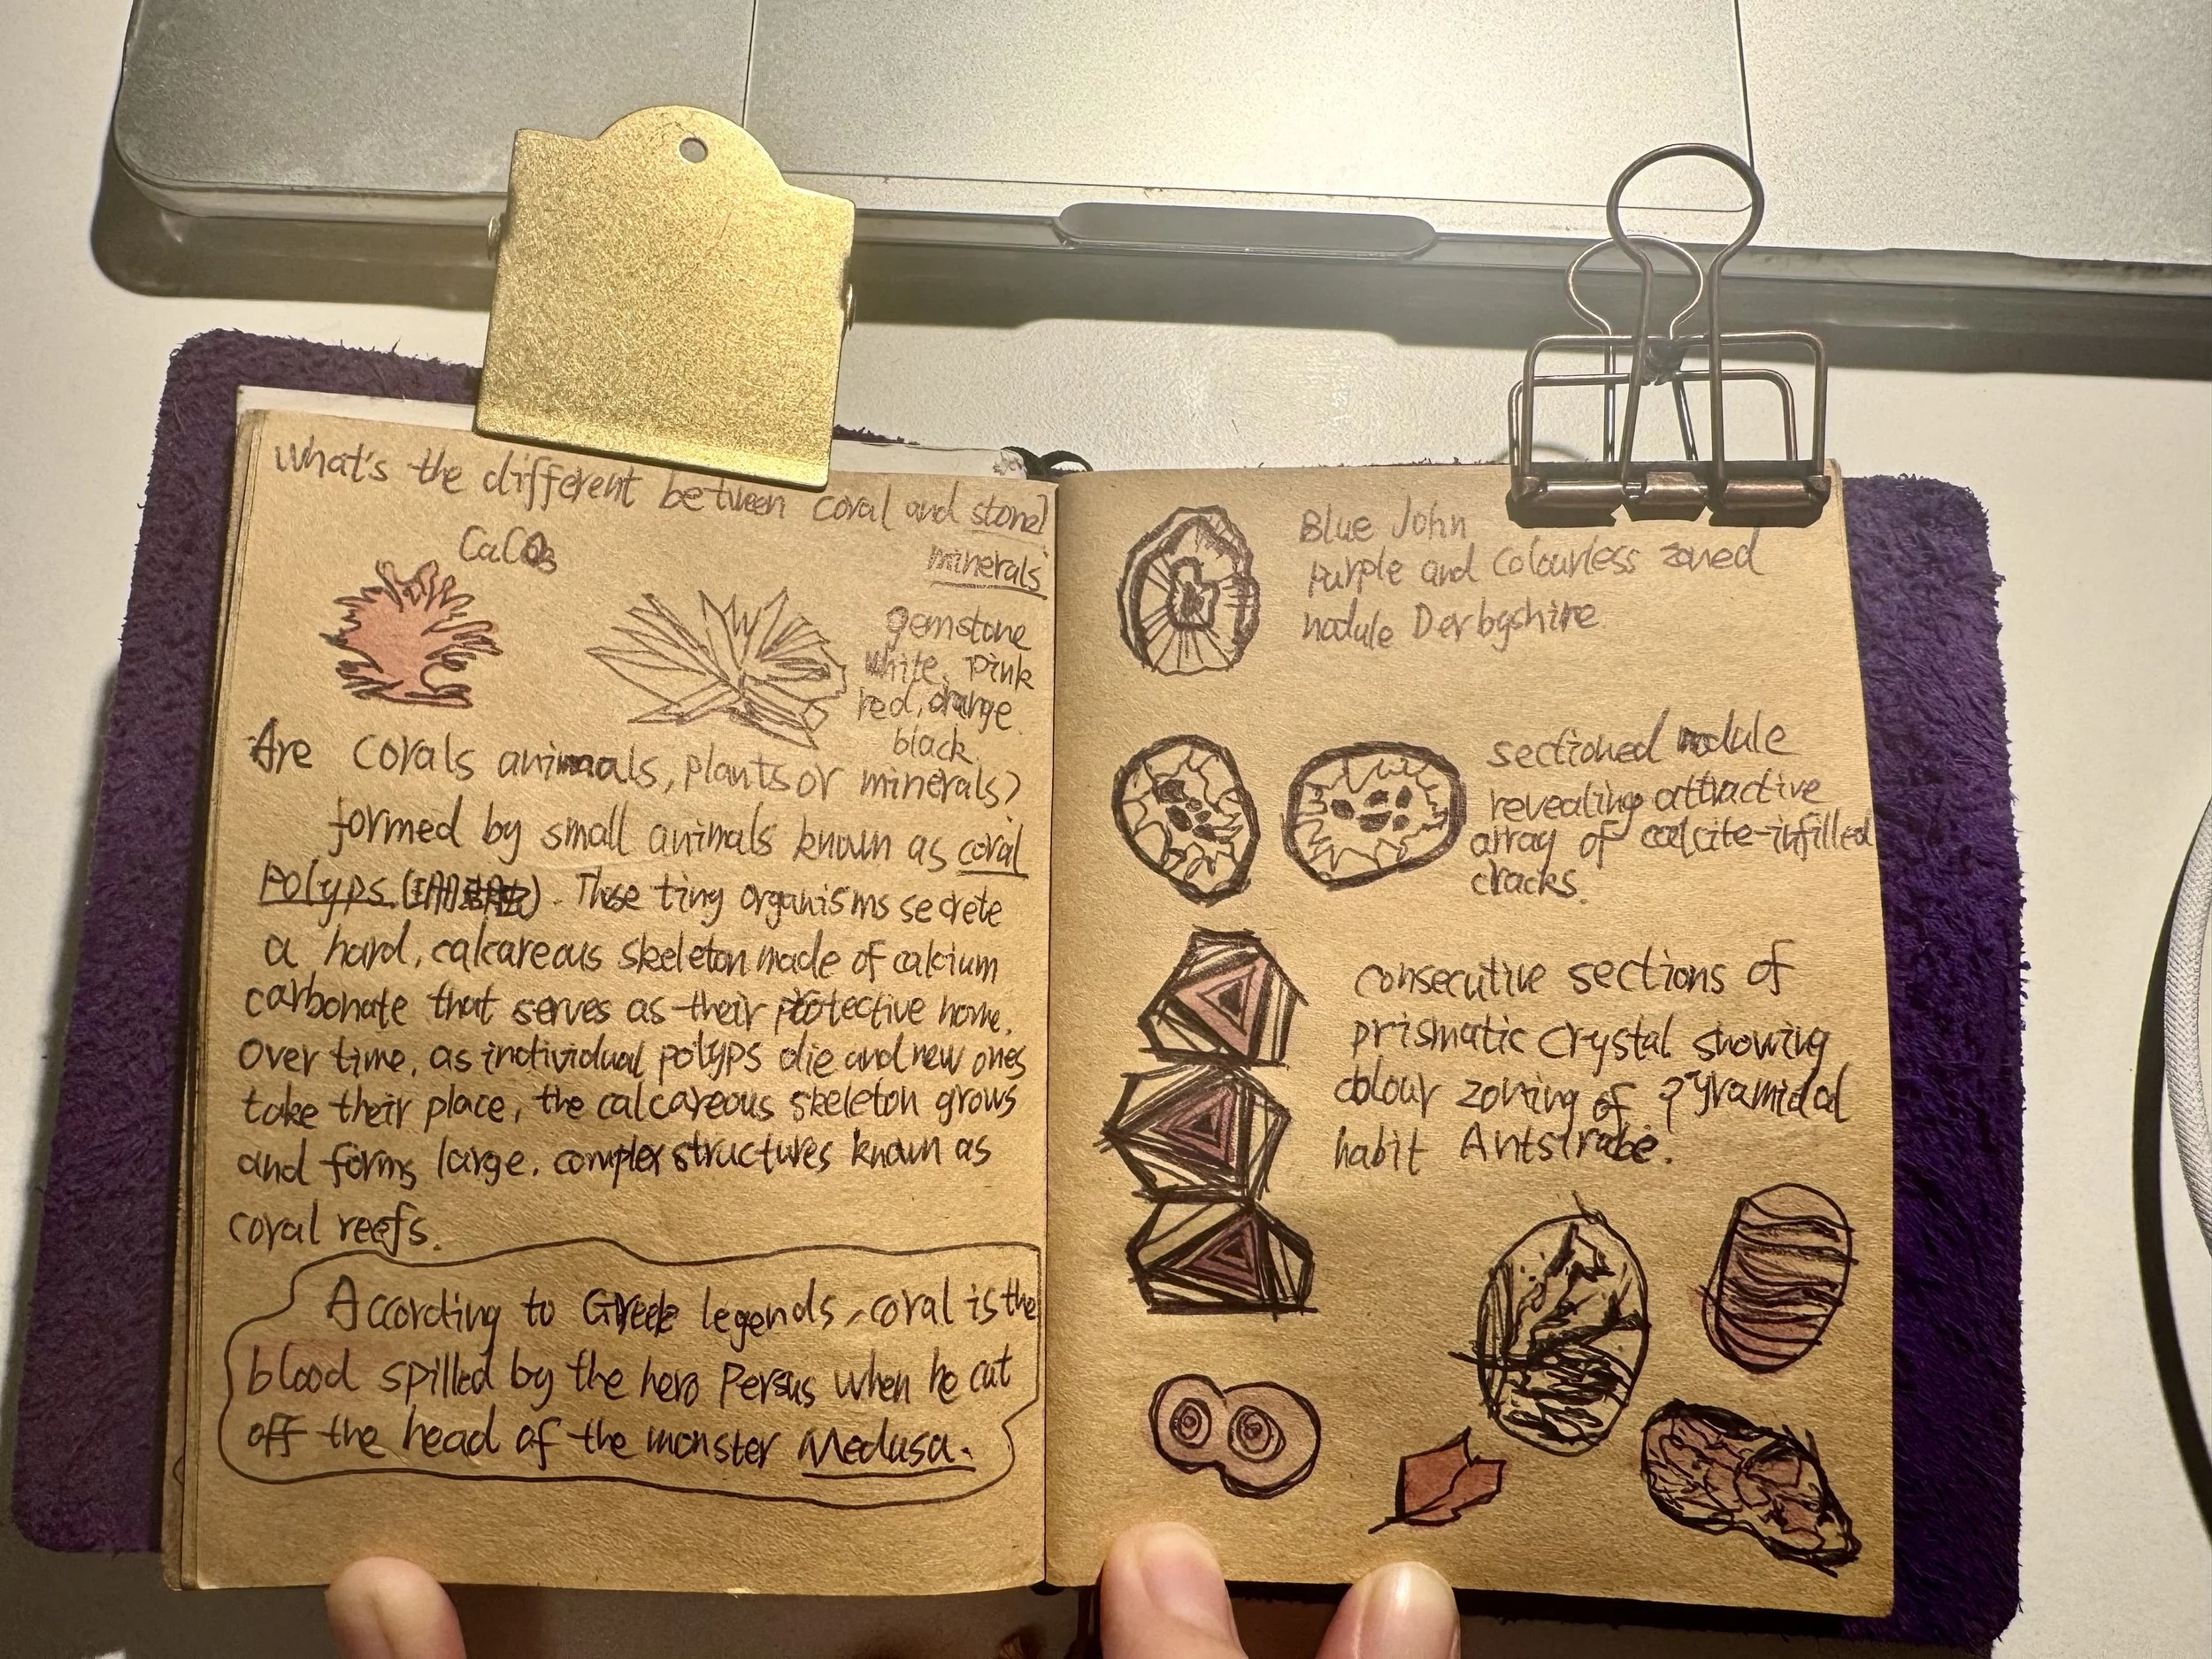 What's the different between coral and stone?
CaCO3
minerals
gemstone
white, pink
red, orange
black
Are corals animaals, plants or minerals?
formed by small animals known as coral
Polyps. ( ). These tiny organisms secrete
a hard, calcareous skeleton made of calcium
carbonate that serves as their protective home.
Over time, as individual polyps die and new ones
take their place, the calcareous skeleton grows
and forms large, complex structures known as
coral reefs.
According to Greek legends, coral is the
blood spilled by the hero Persus when he cut
off the head of the monster Medusa.
Blue John
Purple and Colourless zoned
nodule Derbyshire.
sectioned nodule
revealing attractive
array of calcite-infilled
cracks.
consecutive sections of
prismatic crystal showing
colour zoning of pyramidal
habit Antsirabe.